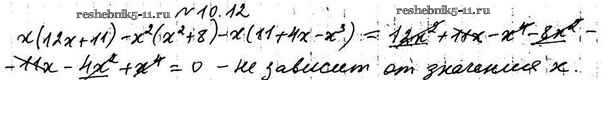 reshebnik5-11.ru
№10.12
reshebnik5-11.ru
x(12x+11)-x²(x²+8)-x(11+4x-x³) = 12x²+11x-x⁴-8x²-
-11x-4x²+x⁴=0 - не зависит от значения x.